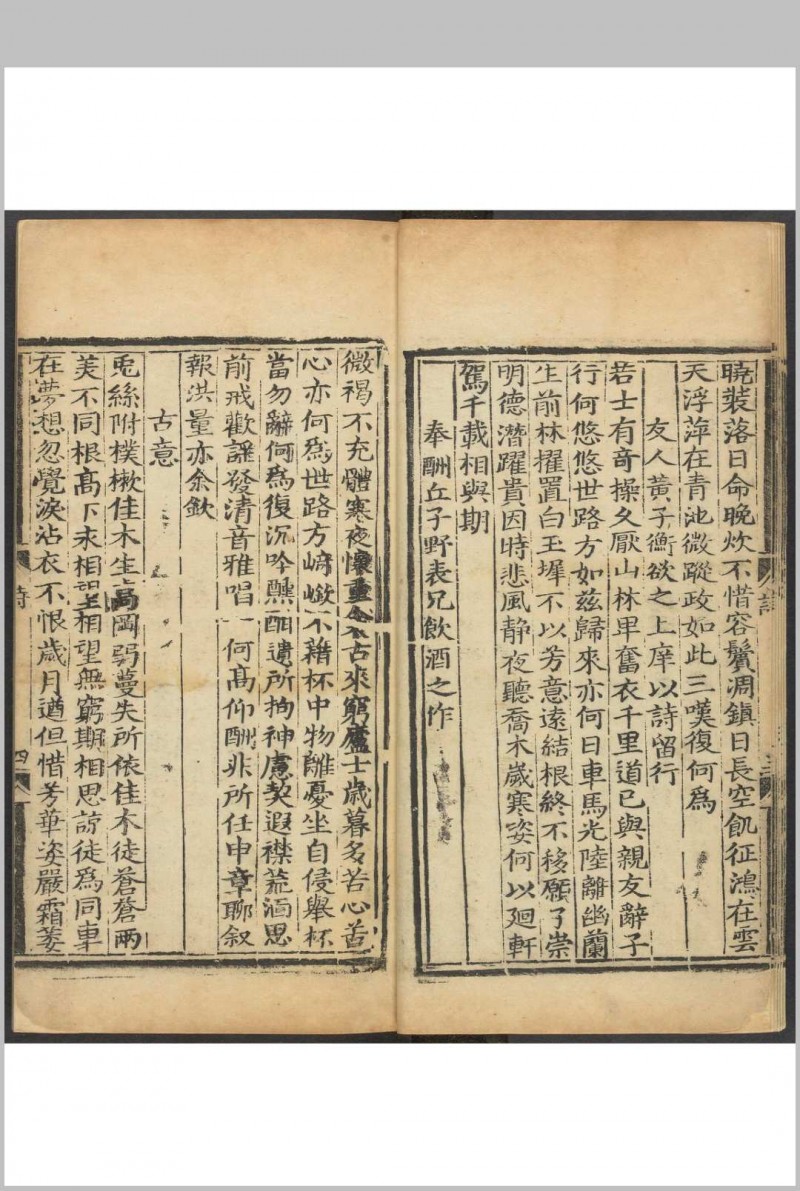 曉裝落日命晚炊不惜容鬢凋鎮日長空飢征鴻在雲
天浮萍在青池微蹤政如此三嘆復何爲
友人黃子衡欲之上庠以詩留行
若士有奇操久厭山林卑奮衣千里道已與親友辭子
行何悠悠世路方如兹歸來亦何日車馬光陸離幽蘭
生前林擢置白玉墀不以芳意遠結根終不移願了崇
明德潛躍貴因時悲風静夜聽喬木歲寒姿何以廻軒
駕千載相與期
奉酬丘子野表兄飲酒之作
微褐不充體寒夜懷重衾古來窮廬士歲暮多苦心苦
心亦何爲世路方崎嶔不藉杯中物離憂坐自侵舉杯
當勿辭何爲復沉吟醺酣遺所拘神慮契遐襟荒湎思
前戒歡謡發清音雅唱一何高仰酬非所任申章聊叙
報洪量亦余欽
古意
兎絲附樸樕佳木生高岡弱蔓失所依佳木徒蒼蒼兩
美不同根高下永相望相望無窮期相思諒徒爲同車
在夢想忽覺淚沾衣不恨歲月遒但惜芳華姿嚴霜萎
詩
四